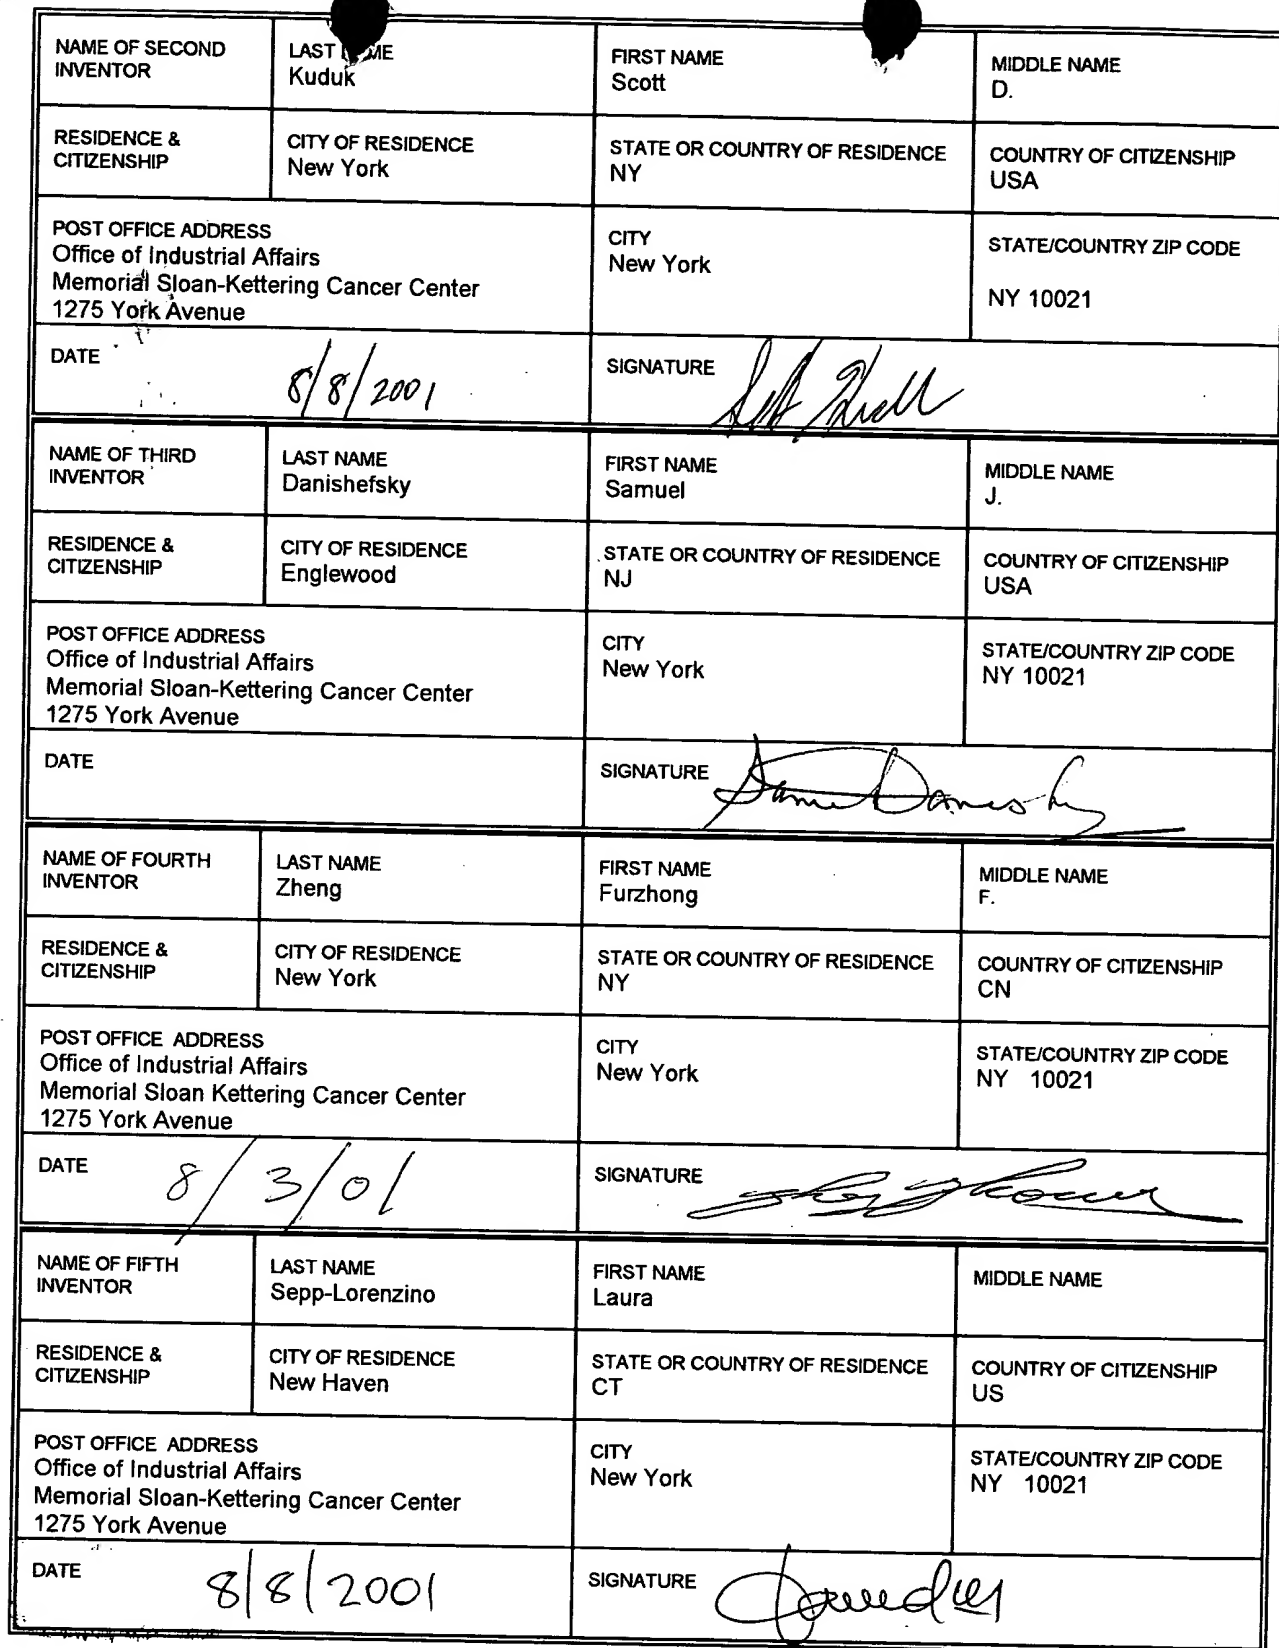 NAME OF SECOND INVENTOR
LAST NAME
Kuduk
FIRST NAME
Scott
MIDDLE NAME
D.
RESIDENCE & CITIZENSHIP
CITY OF RESIDENCE
New York
STATE OR COUNTRY OF RESIDENCE
NY
COUNTRY OF CITIZENSHIP
USA
POST OFFICE ADDRESS
Office of Industrial Affairs
Memorial Sloan-Kettering Cancer Center
1275 York Avenue
CITY
New York
STATE/COUNTRY ZIP CODE
NY 10021
DATE
8/8/2001
SIGNATURE
NAME OF THIRD INVENTOR
LAST NAME
Danishefsky
FIRST NAME
Samuel
MIDDLE NAME
J.
RESIDENCE & CITIZENSHIP
CITY OF RESIDENCE
Englewood
STATE OR COUNTRY OF RESIDENCE
NJ
COUNTRY OF CITIZENSHIP
USA
POST OFFICE ADDRESS
Office of Industrial Affairs
Memorial Sloan-Kettering Cancer Center
1275 York Avenue
CITY
New York
STATE/COUNTRY ZIP CODE
NY 10021
DATE
SIGNATURE
NAME OF FOURTH INVENTOR
LAST NAME
Zheng
FIRST NAME
Furzhong
MIDDLE NAME
F.
RESIDENCE & CITIZENSHIP
CITY OF RESIDENCE
New York
STATE OR COUNTRY OF RESIDENCE
NY
COUNTRY OF CITIZENSHIP
CN
POST OFFICE ADDRESS
Office of Industrial Affairs
Memorial Sloan Kettering Cancer Center
1275 York Avenue
CITY
New York
STATE/COUNTRY ZIP CODE
NY 10021
DATE
8/3/01
SIGNATURE
NAME OF FIFTH INVENTOR
LAST NAME
Sepp-Lorenzino
FIRST NAME
Laura
MIDDLE NAME
RESIDENCE & CITIZENSHIP
CITY OF RESIDENCE
New Haven
STATE OR COUNTRY OF RESIDENCE
CT
COUNTRY OF CITIZENSHIP
US
POST OFFICE ADDRESS
Office of Industrial Affairs
Memorial Sloan-Kettering Cancer Center
1275 York Avenue
CITY
New York
STATE/COUNTRY ZIP CODE
NY 10021
DATE
8/8/2001
SIGNATURE